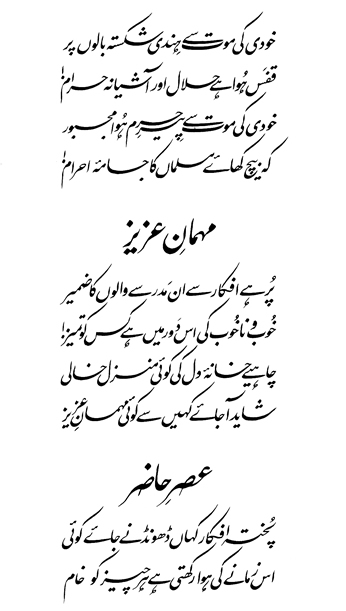 خودی کی موت سے ہندی شکستہ بالوں پر
قفَس ہُوا ہے حلال اور آشیانہ حرام!
خودی کی موت سے پیرِ حرم ہُوا مجبور
کہ بیچ کھائے مسلماں کا جامۂ احرام!
مہمانِ عزیز
پُر ہے افکار سے ان مَدرسے والوں کا ضمیر
خُوب و ناخُوب کی اس دَور میں ہے کس کو تمیز!
چاہیے خانۂ دل کی کوئی منزل خالی
شاید آجائے کہیں سے کوئی مہمانِ عزیز
عصرِ حاضر
پُختہ افکار کہاں ڈھونڈنے جائے کوئی
اس زمانے کی ہوا رکھتی ہے ہر چیز کو خام